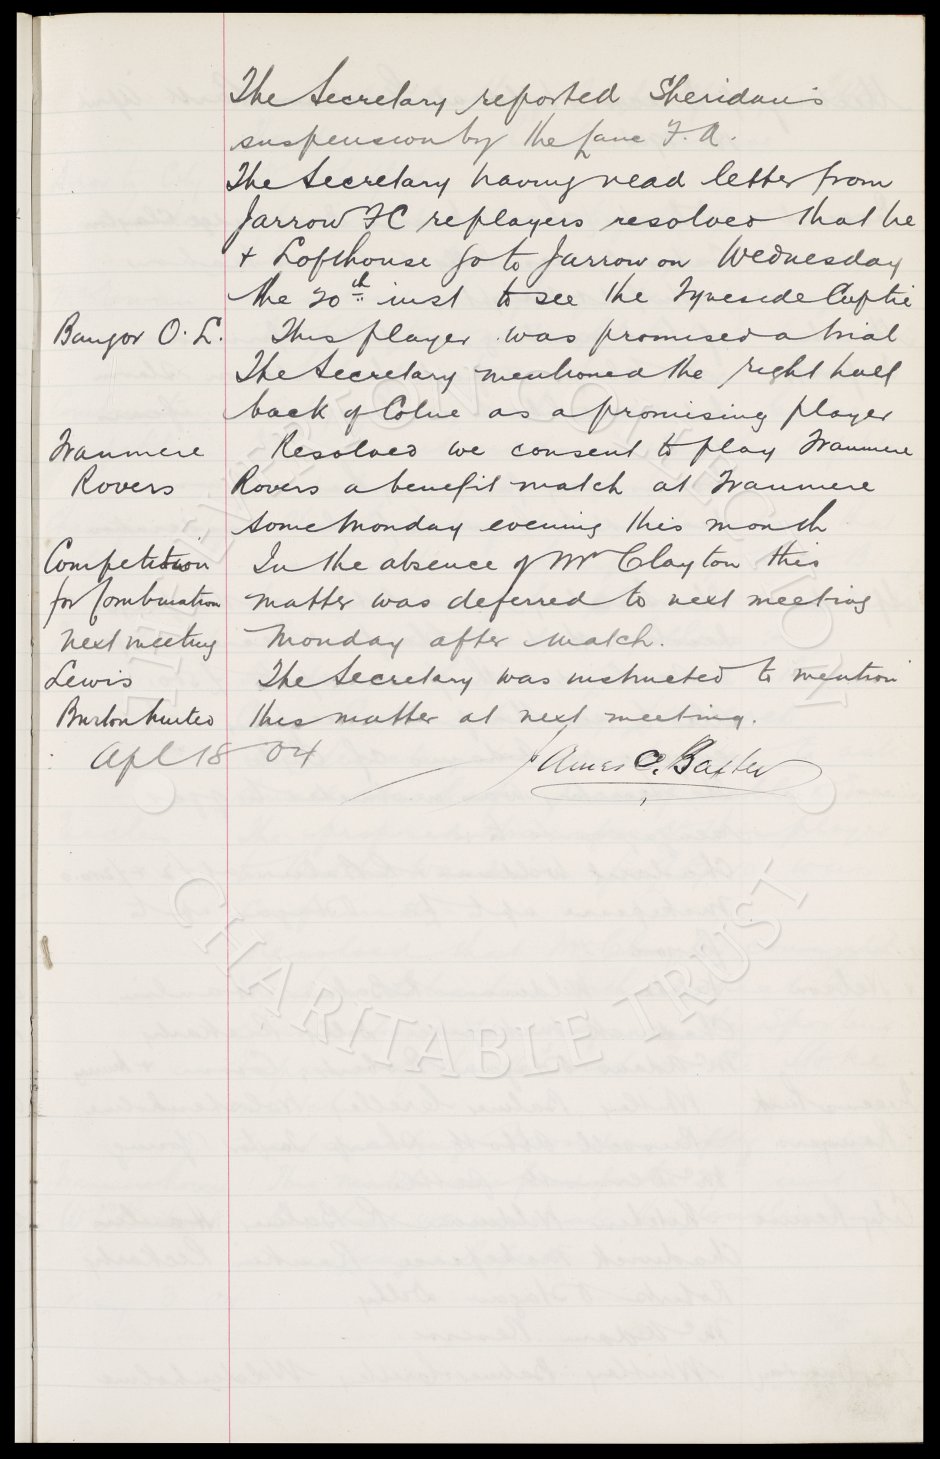 The Secretary reported Sheridan's
suspension by the Lanc F. A.
The Secretary having read letter from
Jarrow FC re players resolved that he
+ Lofthouse go to Jarrow on Wednesday
the 20th inst to see the Tyneside Cup tie
Bangor O. L. This player was promised a trial
The Secretary mentioned the right half
back of Colne as a promising player
Tranmere Resolved we consent to play Tranmere
Rovers Rovers a benefit match at Tranmere
some Monday evening this month
Competition In the absence of Mr Clayton this
for Combination matter was deferred to next meeting
next meeting Monday after match.
Lewis The Secretary was instructed to mention
Burton United this matter at next meeting.
Apl 18 04 James C. Baxter
CHARITABLE TRUST